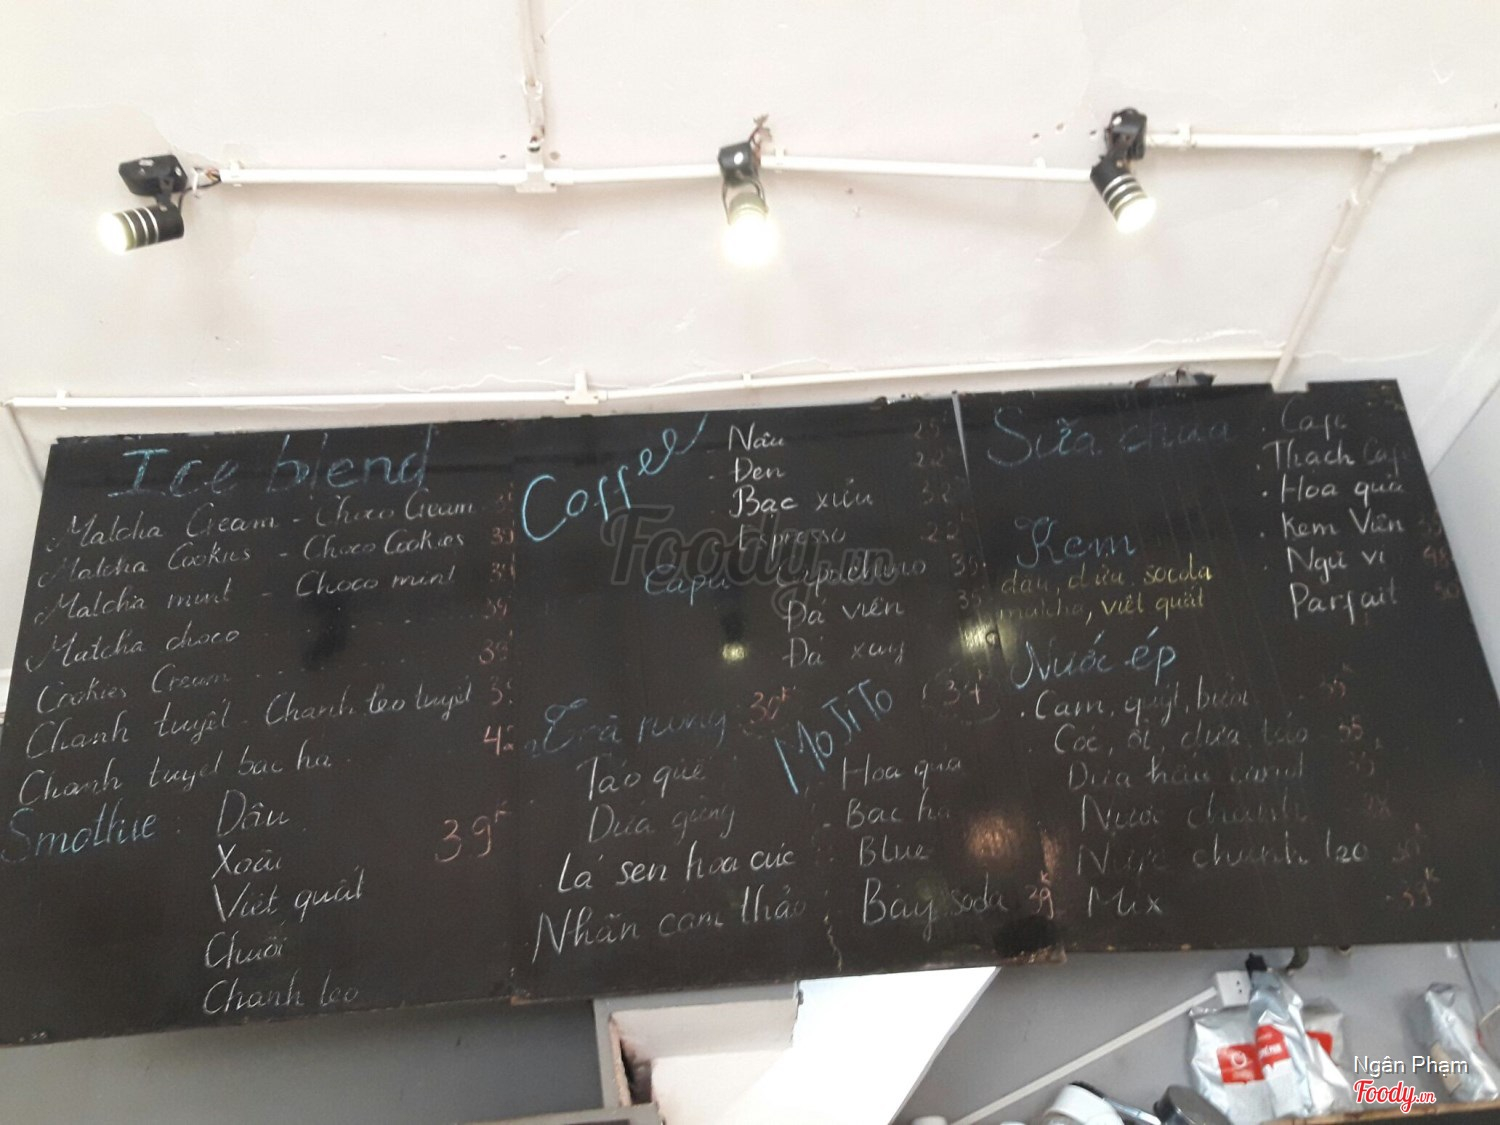 Ice blend
Matcha Cream - Choco Cream
Matcha Cookies - Choco Cookies 39
Matcha mint - Choco mint 39
Matcha choco 39
Cookies Cream 39
Chanh tuyết - Chanh leo tuyết
Chanh tuyết bạc hà
Smothie . Dâu 39k
Xoài
Việt quất
Chuối
Chanh leo
Coffee
. Nâu 25
. Đen 22
. Bạc xỉu
Espresso 22
Capu Capuchino 35
Đá viên 35
Đá xay
Trà rừng 30k
Táo quế
Dứa gừng
Lá sen hoa cúc
Nhãn cam thảo
MoJiTo 39k
Hoa quả
Bạc hà
Blue
Bay soda 39k
Sữa chua
. Cafe
. Thạch Cafe
. Hoa quả
Kem
dâu, dừa, socola
matcha, việt quất
. Kem Viên
. Ngũ vị
Parfait
Nước ép
. Cam, quýt, bưởi
. Cóc, ổi, dứa, táo 35
Nước chanh
Nước chanh leo
Mix 39k
Foody.vn
Ngân Phạm
Foody.vn